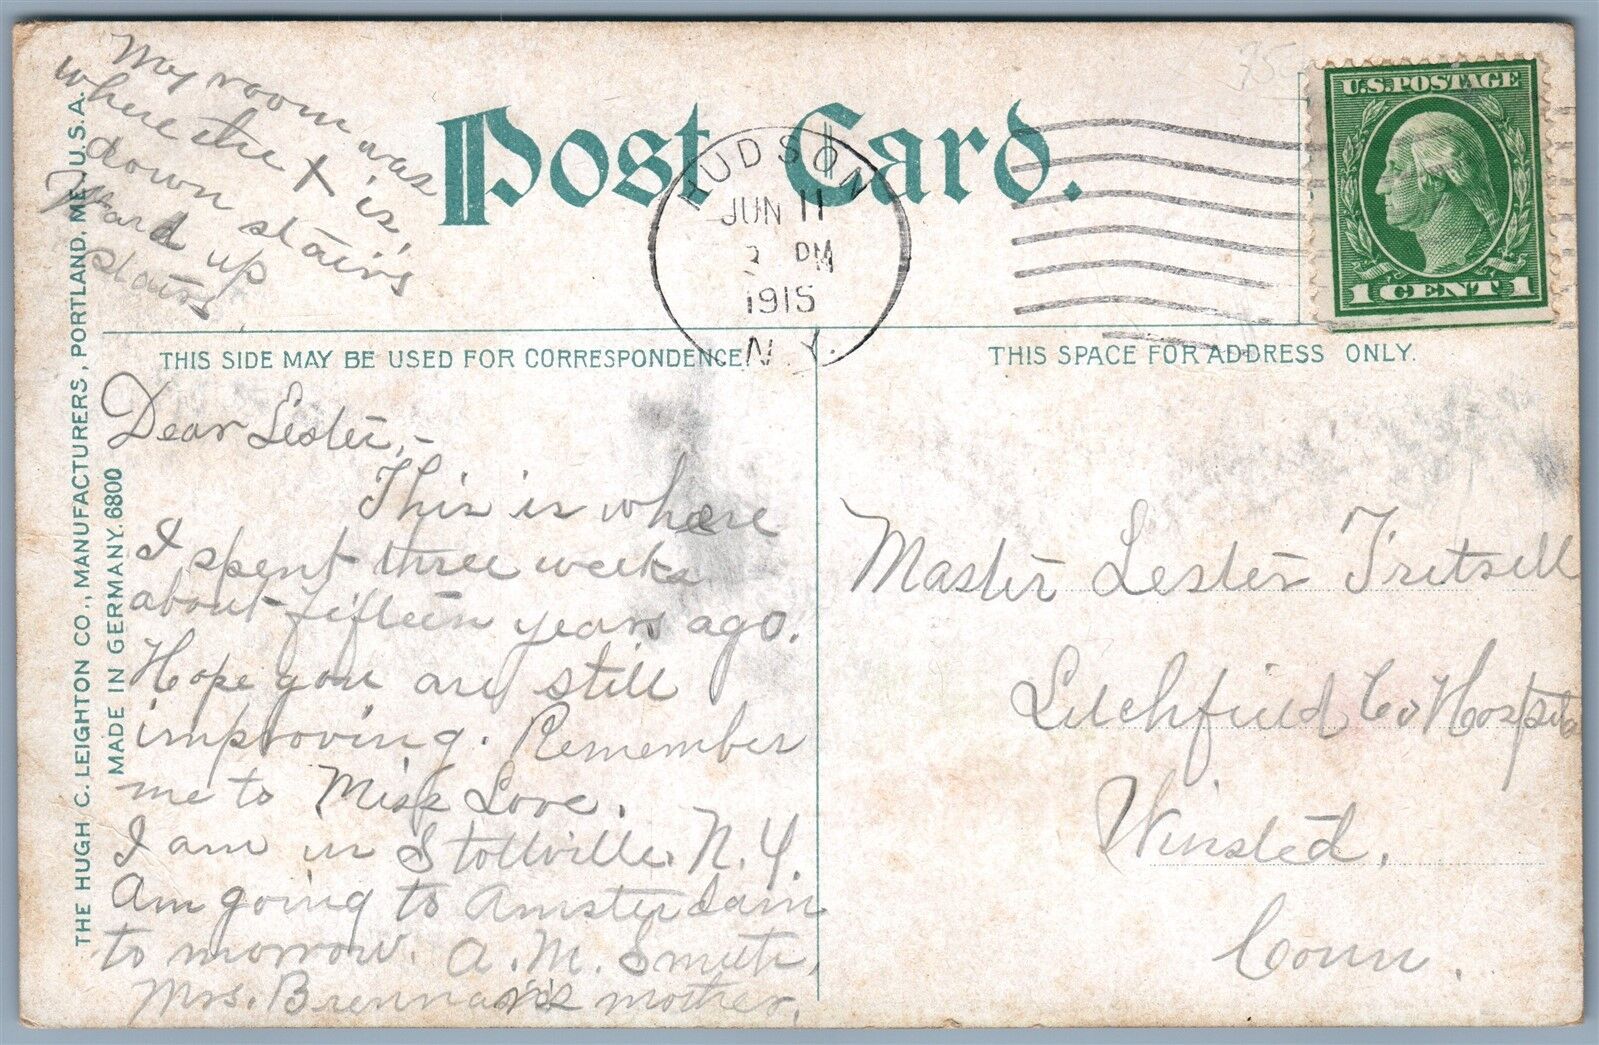 My room was
where the X is,
down stairs
Ward up
stairs.
Post Card.
HUDSON
JUN 11
PM
1915
N.Y.
U.S. POSTAGE
1 CENT 1
THIS SIDE MAY BE USED FOR CORRESPONDENCE
THIS SPACE FOR ADDRESS ONLY.
THE HUGH C. LEIGHTON CO., MANUFACTURERS, PORTLAND, ME., U.S.A.
MADE IN GERMANY. 6800
Dear Lester,-
This is where
I spent three weeks
about fifteen years ago.
Hope you are still
improving. Remember
me to Miss Love.
I am in Stottville. N.Y.
Am going to Amsterdam
to morrow. A. M. Smith,
Mrs. Brennan's mother.
Master Lester
Litchfield Co Hospital
Winsted,
Conn.